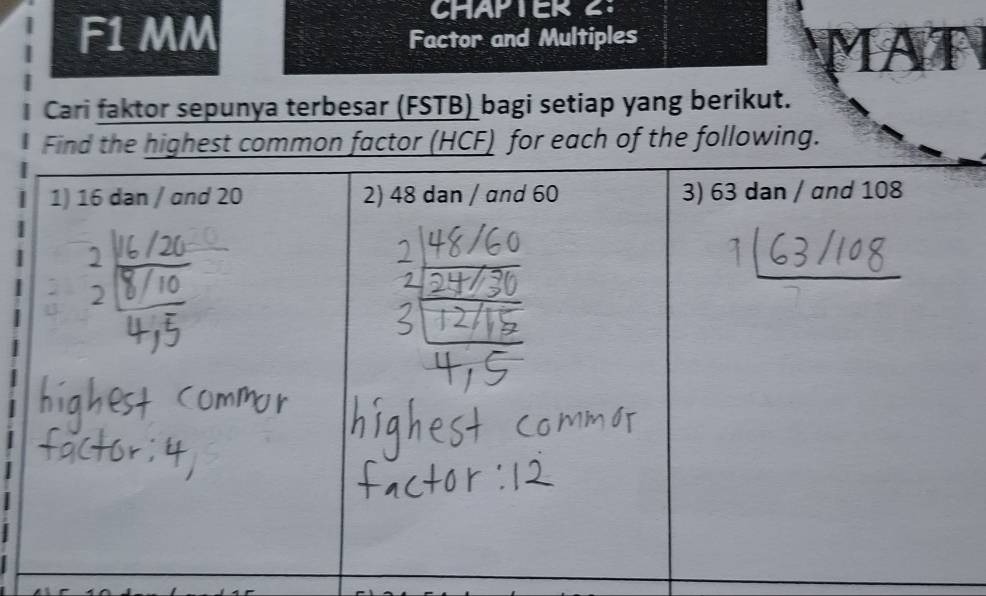 F1 MM
CHAPTER 2:
Factor and Multiples
MAT
Cari faktor sepunya terbesar (FSTB) bagi setiap yang berikut.
Find the highest common factor (HCF) for each of the following.
1) 16 dan / and 20
2 16/20
2 8/10
4,5
highest commor
factor: 4,
2) 48 dan / and 60
2 48/60
2 24/30
3 12/15
4,5
highest commor
factor: 12
3) 63 dan / and 108
63/108